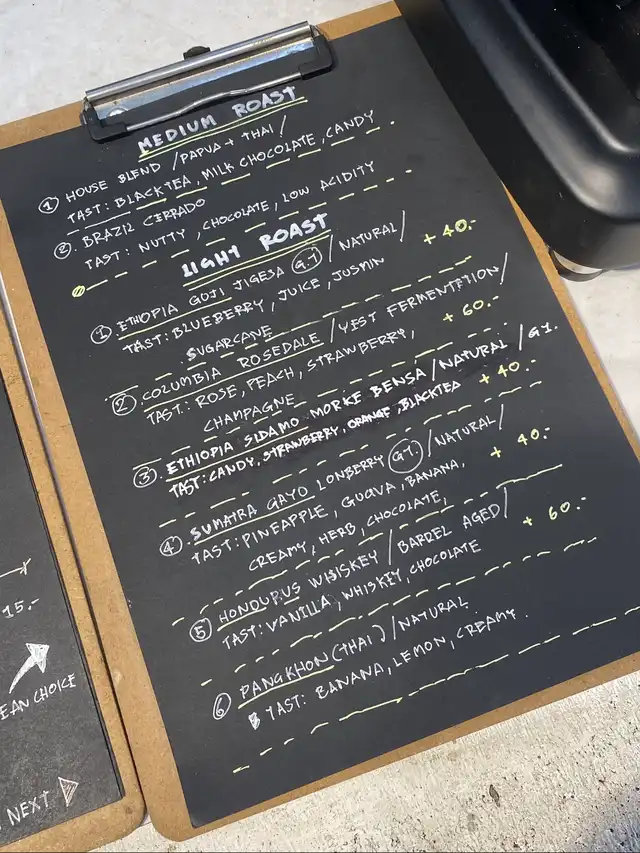 MEDIUM ROAST
① HOUSE BLEND /PAPUA + THAI/
TAST: BLACKTEA, MILK CHOCOLATE, CANDY.
②. BRAZIL CERRADO
TAST: NUTTY, CHOCOLATE, LOW ACIDITY
LIGHT ROAST
① ETHOPIA GOJI JIGESA G.1 / NATURAL/ + 40.-
TAST: BLUEBERRY, JUICE, JUSMIN
SUGARCANE
② COLUMBIA ROSEDALE / YEST FERMENTATION/
TAST: ROSE, PEACH, STRAWBERRY, + 60.-
CHAMPAGNE
③. ETHIOPIA SIDAMO MORKE BENSA/NATURAL /G1.
TAST: CANDY, STRAWBERRY, ORANGE, BLACKTEA + 40.-
④ SUMATRA GAYO LONBERRY G1. / NATURAL/
TAST: PINEAPPLE, GUAVA, BANANA, + 40.-
CREAMY, HERB, CHOCOLATE,
⑤ HONDURUS WHISKEY / BARREL AGED/
TAST: VANILLA, WHISKEY, CHOCOLATE + 60.-
⑥ PANGKHON (THAI) / NATURAL
TAST: BANANA, LEMON, CREAMY.
15.-
EAN CHOICE
NEXT